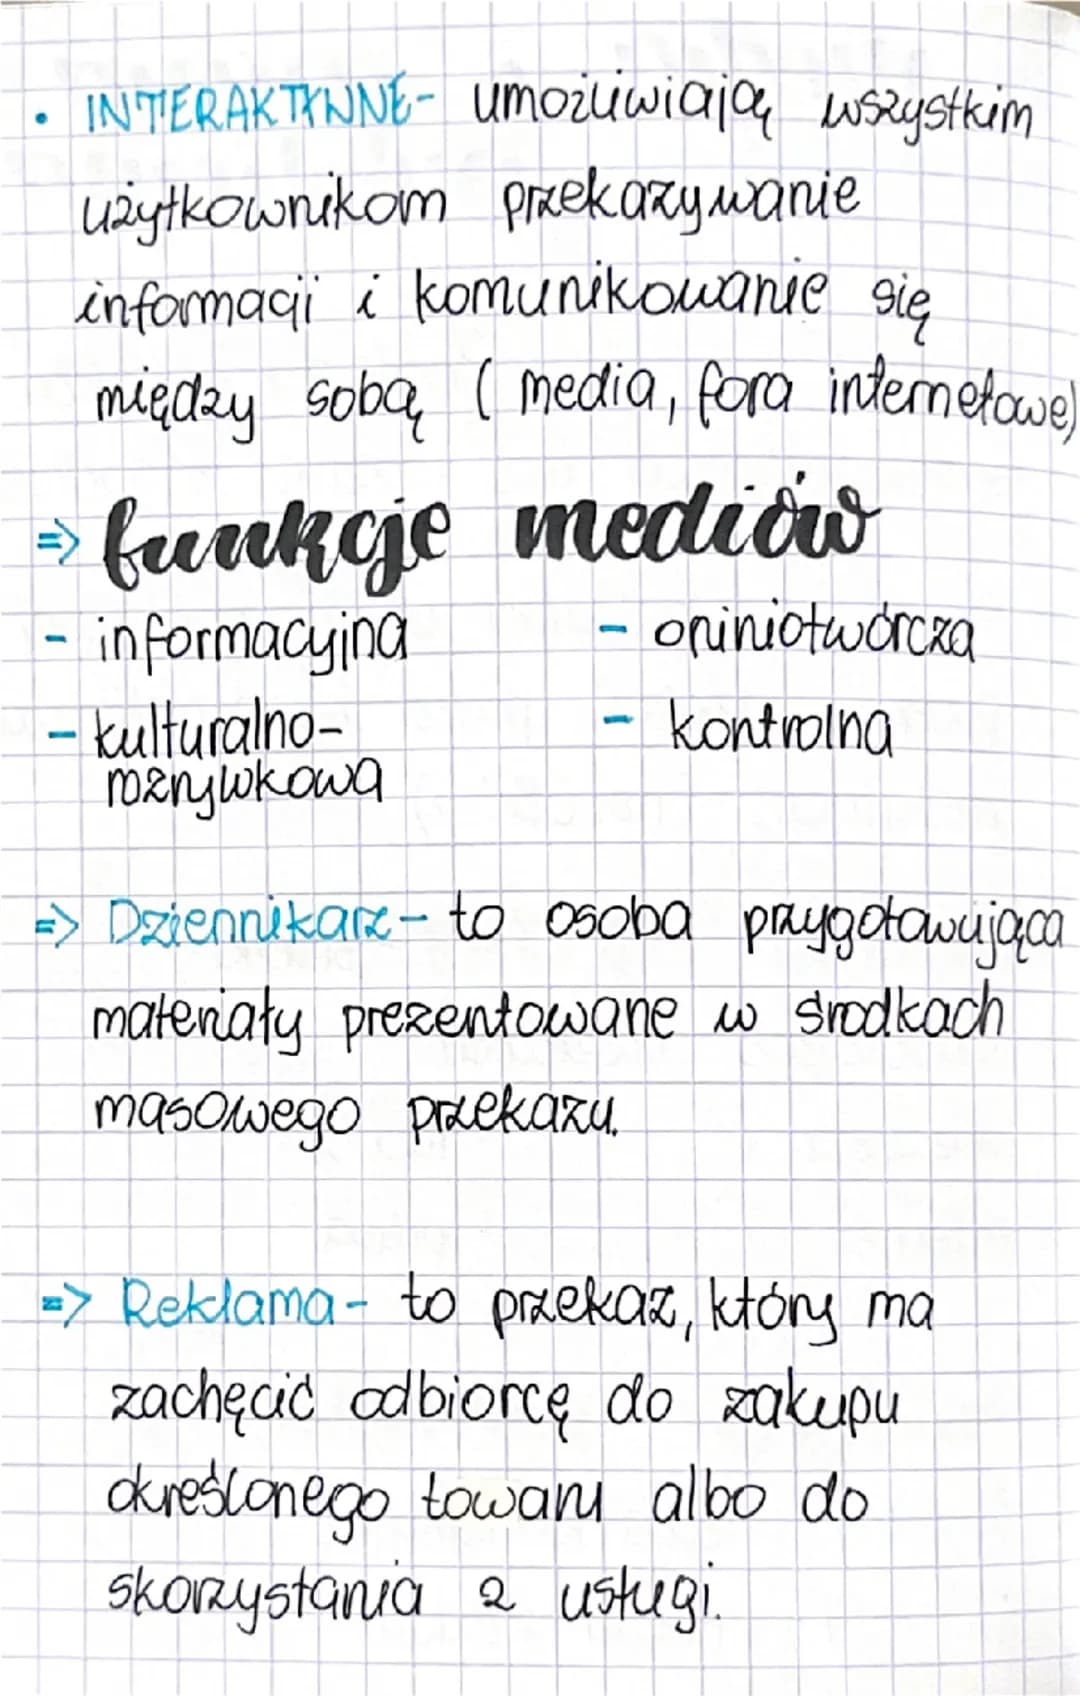 • INTERAKTYWNE- umożliwiają wszystkim
użytkownikom przekazywanie
informacji i komunikowanie się
między sobą (media, fora internetowe)
=> funkcje mediów
- informacyjna - opiniotwórcza
- kulturalno- - kontrolna
rozrywkowa
=> Dziennikarz - to osoba przygotowująca
materiały prezentowane w środkach
masowego przekazu.
=> Reklama - to przekaz, który ma
zachęcić odbiorcę do zakupu
określonego towaru albo do
skorzystania z usługi.